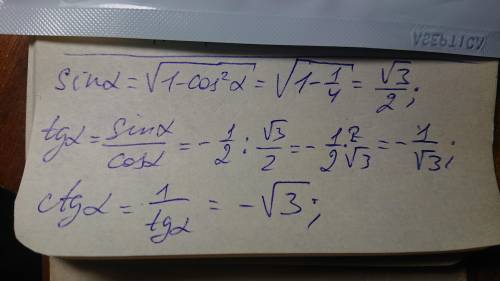 sinα = √(1-cos²α) = √(1-1/4) = √3/2;
tgα = sinα/cosα = -1/2 : √3/2 = -1/2 · 2/√3 = -1/√3;
ctgα = 1/tgα = -√3;